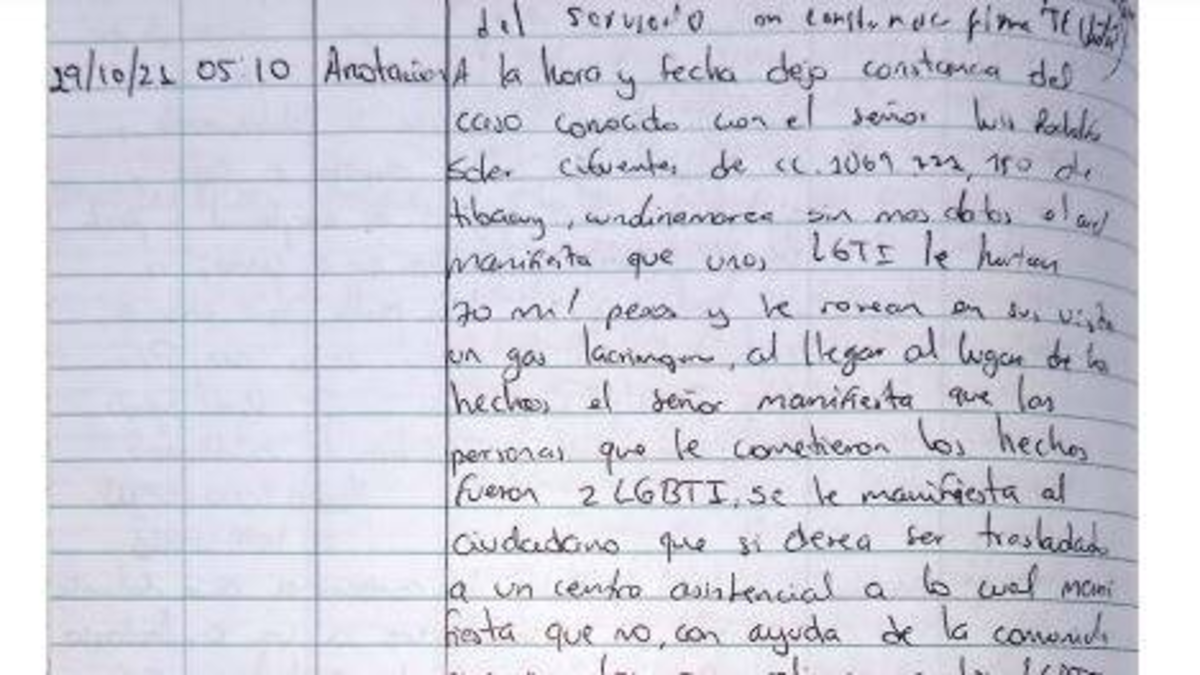 del servicio en constancia firma TE
29/10/21 05:10 Anotacion A la hora y fecha dejo constancia del
caso conocido con el señor Luis
Soler Cifuentes de cc. 1069 722, 150 de
tibacuy, cundinamarca sin mas datos el cual
manifiesta que unos LGTI le hurtan
70 mil pesos y le rosean en sus vista
un gas lacrimogeno, al llegar al lugar de lo
hechos el señor manifiesta que las
personas que le cometieron los hechos
fueron 2 LGBTI, se le manifiesta al
ciudadano que si desea ser trasladado
a un centro asistencial a lo cual mani
fiesta que no, con ayuda de la comuni